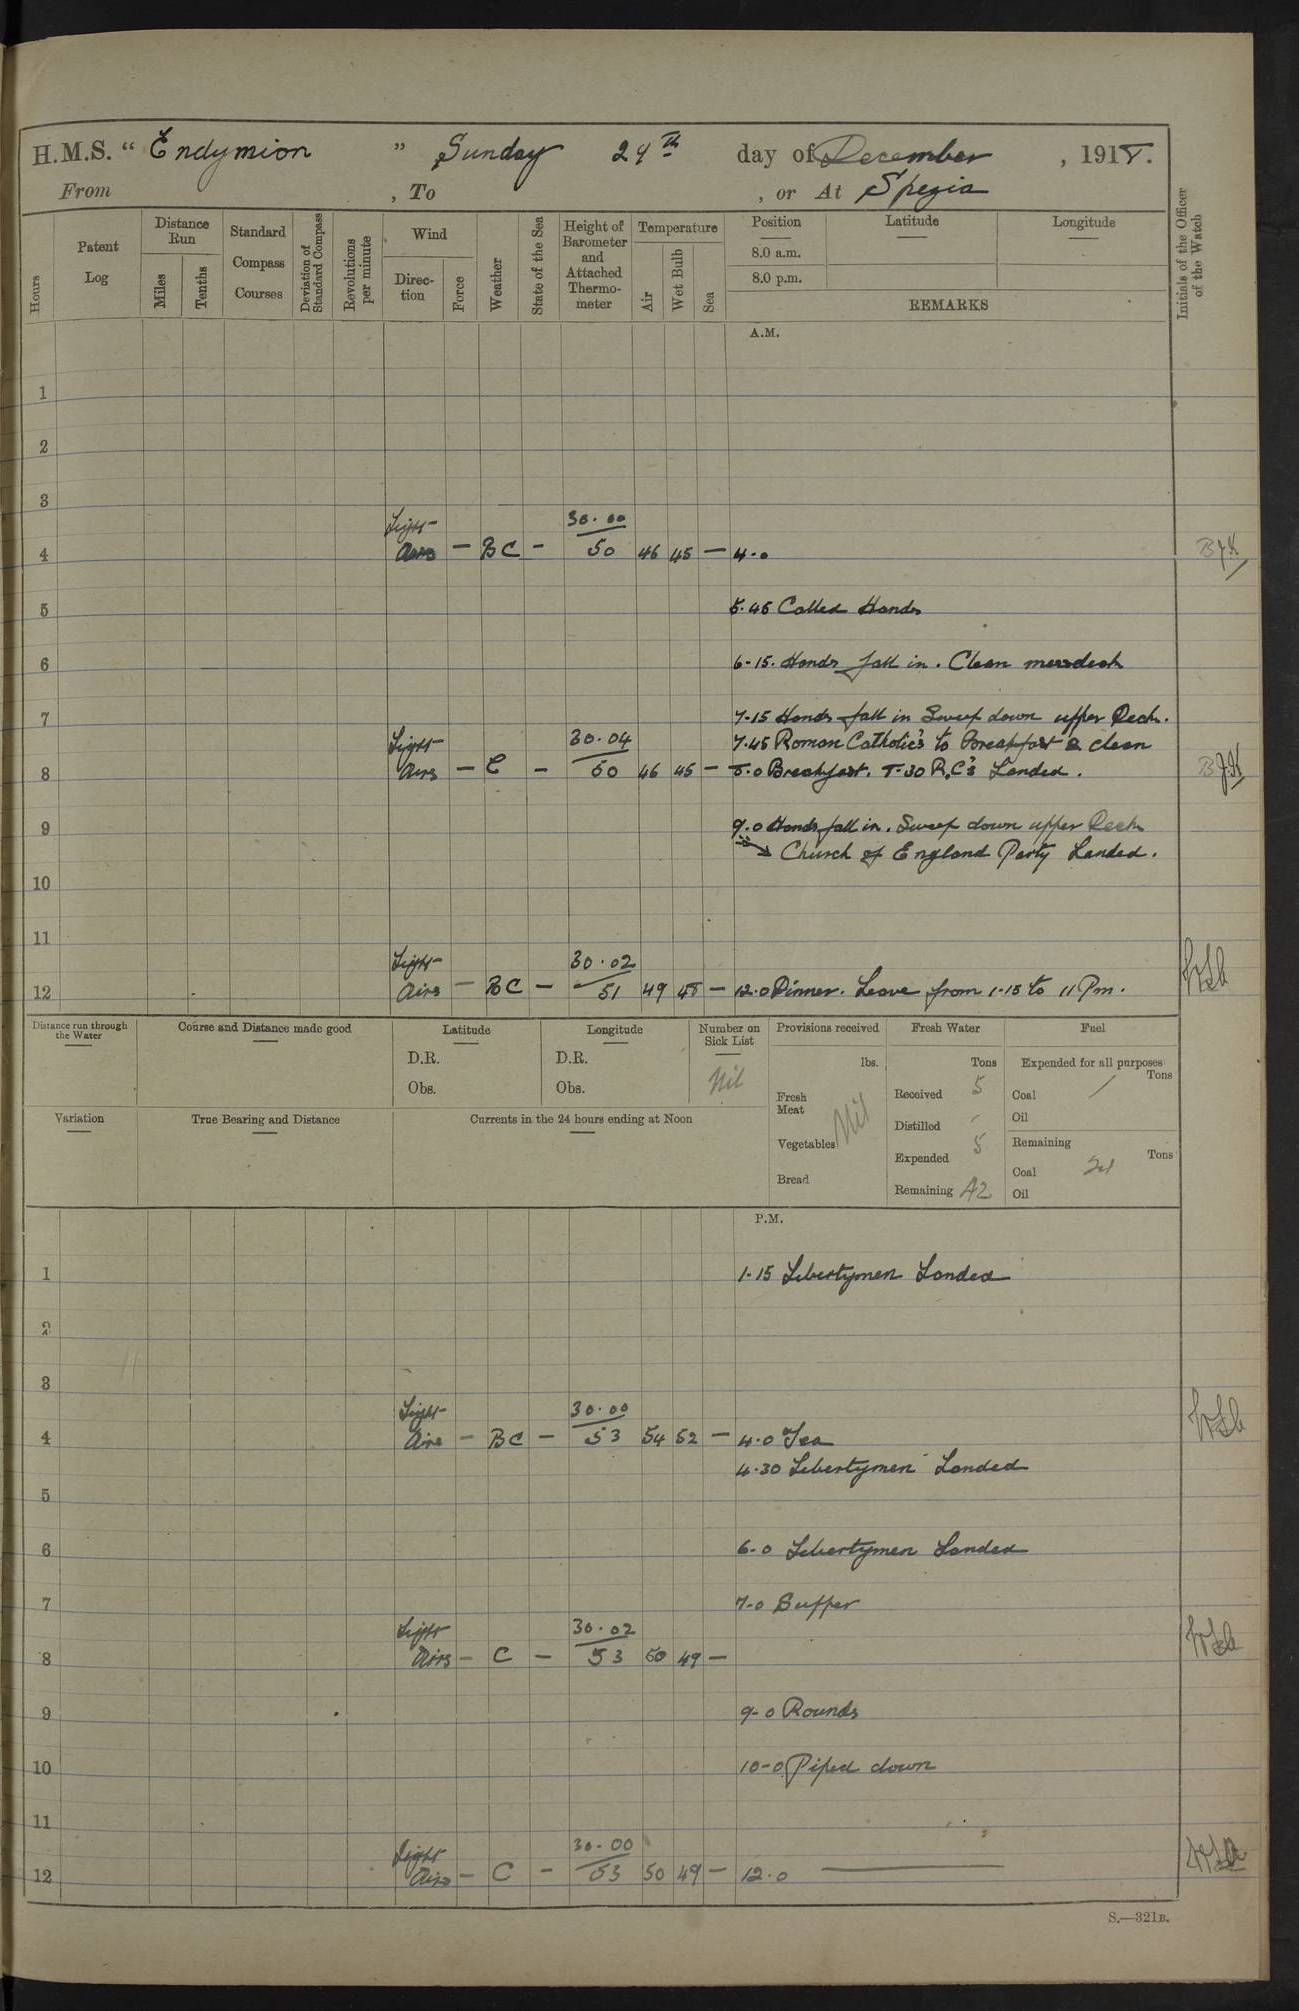 H.M.S. “ Endymion ” Sunday 29th day of December , 1918.
From , To , or At Spezia
Hours
Patent Log
Distance Run
Miles
Tenths
Standard Compass Courses
Deviation of Standard Compass
Revolutions per minute
Wind
Direc-tion
Force
Weather
State of the Sea
Height of Barometer and Attached Thermo-meter
Temperature
Air
Wet Bulb
Sea
Position
8.0 a.m.
8.0 p.m.
Latitude
Longitude
REMARKS
Initials of the Officer of the Watch
A.M.
1
2
3
Light 30.00
4 Airs — BC — 50 46 45 — 4.0
5 5.45 Called Hands
6 6-15. Hands fall in. Clean messdeck
7 7-15 Hands fall in Sweep down upper Deck.
Light 30.04 7.45 Roman Catholic's to Breakfast & clean
8 Airs — C — 50 46 45 — 8.0 Breakfast. 8-30 R.C's Landed.
9 9.0 Hands fall in. Sweep down upper Deck
Church of England Party Landed.
10
11
Light 30.02
12 Airs — BC — 51 49 48 — 12.0 Dinner. Leave from 1-15 to 11 Pm.
Distance run through the Water
Course and Distance made good
Latitude
D.R.
Obs.
Longitude
D.R.
Obs.
Number on Sick List
Nil
Provisions received
lbs.
Fresh Meat
Vegetables
Bread
Nil
Fresh Water
Tons
Received 5
Distilled
Expended 5
Remaining 42
Fuel
Expended for all purposes
Tons
Coal
Oil
Remaining
Tons
Coal
Oil
Variation
True Bearing and Distance
Currents in the 24 hours ending at Noon
P.M.
1 1-15 Libertymen Landed
2
3
Light 30.00
4 Airs — BC — 53 54 52 — 4.0 Tea
4.30 Libertymen Landed
5
6 6-0 Libertymen Landed
7 7-0 Supper
Light 30.02
8 Airs — C — 53 50 49 —
9 9-0 Rounds
10 10-0 Piped down
11
Light 30.00
12 Airs — C — 53 50 49 — 12.0
S.—321B.